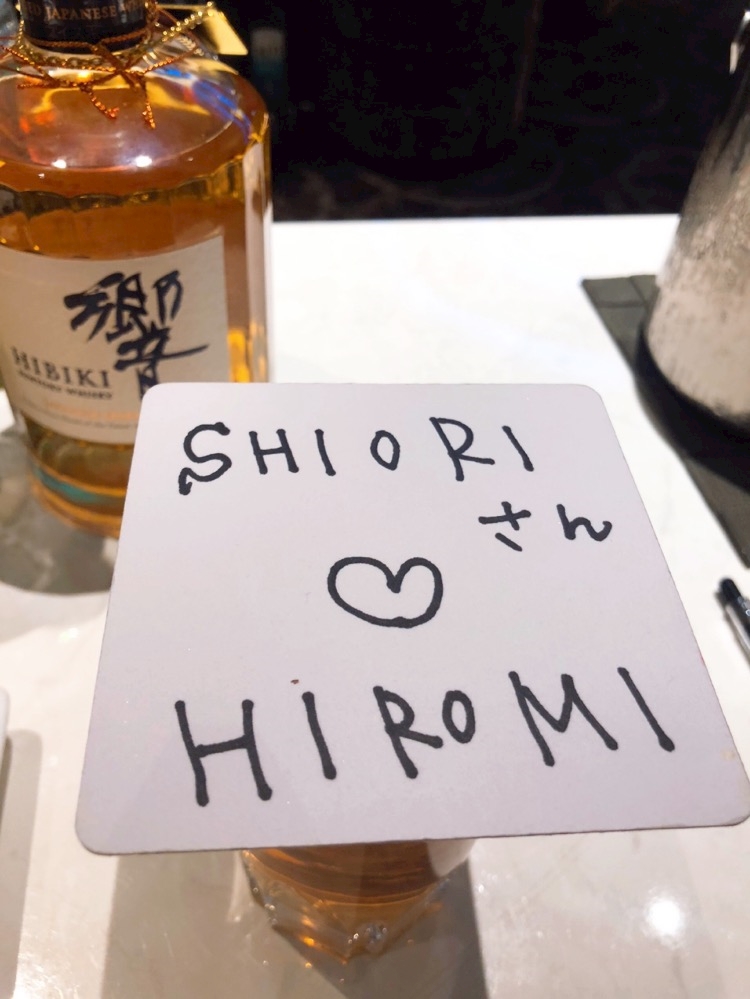 JAPANESE
響
HIBIKI
SUNTORY WHISKY
SHIORI
さん
HIROMI